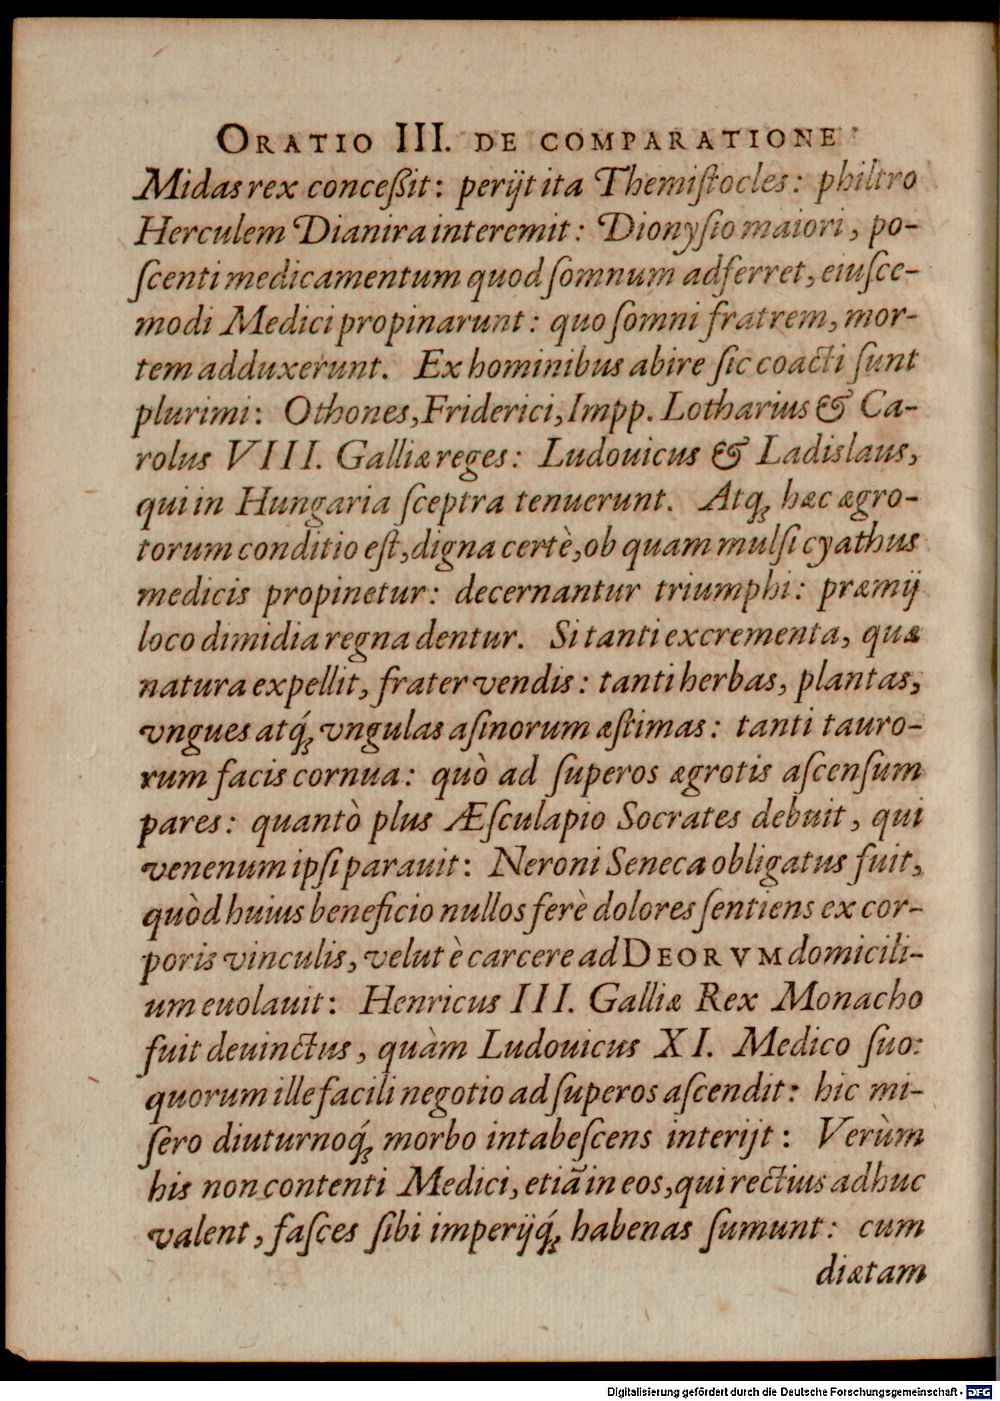 ORATIO III. DE COMPARATIONE
Midas rex conceſſit: perijt ita Themiſtocles: philtro
Herculem Dianira interemit: Dionyſio maiori, po-
ſcenti medicamentum quod ſomnum adferret, eiuſce-
modi Medici propinarunt: quo ſomni fratrem, mor-
tem adduxerunt. Ex hominibus abire ſic coacti ſunt
plurimi: Othones, Friderici, Impp. Lotharius & Ca-
rolus VIII. Galliæ reges: Ludouicus & Ladislaus,
qui in Hungaria ſceptra tenuerunt. Atqꝫ hæc ægro-
torum conditio eſt, digna certè, ob quam mulſi cyathus
medicis propinetur: decernantur triumphi: præmij
loco dimidia regna dentur. Si tanti excrementa, quæ
natura expellit, frater vendis: tanti herbas, plantas,
vngues atq́ꝫ vngulas aſinorum æſtimas: tanti tauro-
rum facis cornua: quò ad ſuperos ægrotis aſcenſum
pares: quantò plus Æſculapio Socrates debuit, qui
venenum ipſi parauit: Neroni Seneca obligatus fuit,
quòd huius beneficio nullos ferè dolores ſentiens ex cor-
poris vinculis, velut è carcere ad DEORVM domicili-
um euolauit: Henricus III. Galliæ Rex Monacho
fuit deuinctus, quàm Ludouicus XI. Medico ſuo:
quorum ille facili negotio ad ſuperos aſcendit: hic mi-
ſero diuturnoq́ꝫ morbo intabeſcens interijt: Verùm
his non contenti Medici, etiã in eos, qui rectius adhuc
valent, faſces ſibi imperijq́ꝫ habenas ſumunt: cum
diætam
Digitalisierung gefördert durch die Deutsche Forschungsgemeinschaft - DFG